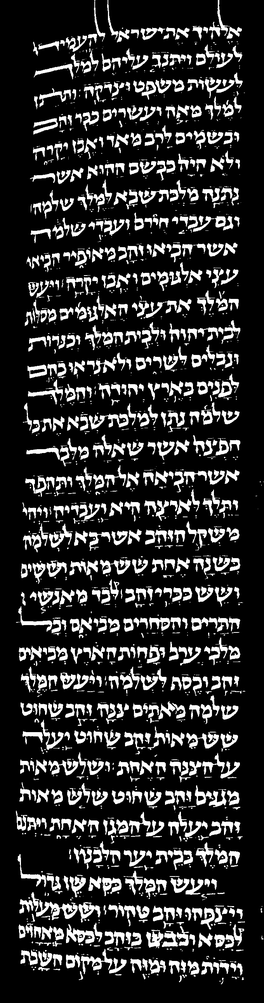 אלהיך את ישראל להעמידו
לעולם ויתנך עליהם למלך
לעשות משפט וצדקה ותתן
למלך מאה ועשרים ככר זהב
ובשמים לרב מאד ואבן יקרה
ולא היה כבשם ההוא אשר
נתנה מלכת שבא למלך שלמה
וגם עבדי חירם ועבדי שלמה
אשר הביאו זהב מאופיר הביאו
עצי אלגומים ואבן יקרה ויעש
המלך את עצי האלגומים מסלות
לבית יהוה ולבית המלך וכנרות
ונבלים לשרים ולא נראו כהם
לפנים בארץ יהודה והמלך
שלמה נתן למלכת שבא את כל
חפצה אשר שאלה מלבד
אשר הביאה אל המלך ותהפך
ותלך לארצה היא ועבדיה ויהי
משקל הזהב אשר בא לשלמה
בשנה אחת שש מאות וששים
ושש ככרי זהב לבד מאנשי
התרים והסחרים מביאם וכל
מלכי ערב ופחות הארץ מביאים
זהב וכסף לשלמה ויעש המלך
שלמה מאתים צנה זהב שחוט
שש מאות זהב שחוט יעלה
על הצנה האחת ושלש מאות
מגנים זהב שחוט שלש מאות
זהב יעלה על המגן האחת ויתנם
המלך בבית יער הלבנון
ויעש המלך כסא שן גדול
ויצפהו זהב טהור ושש מעלות
לכסא וכבש בזהב לכסא מאחזים
וידות מזה ומזה על מקום השבת